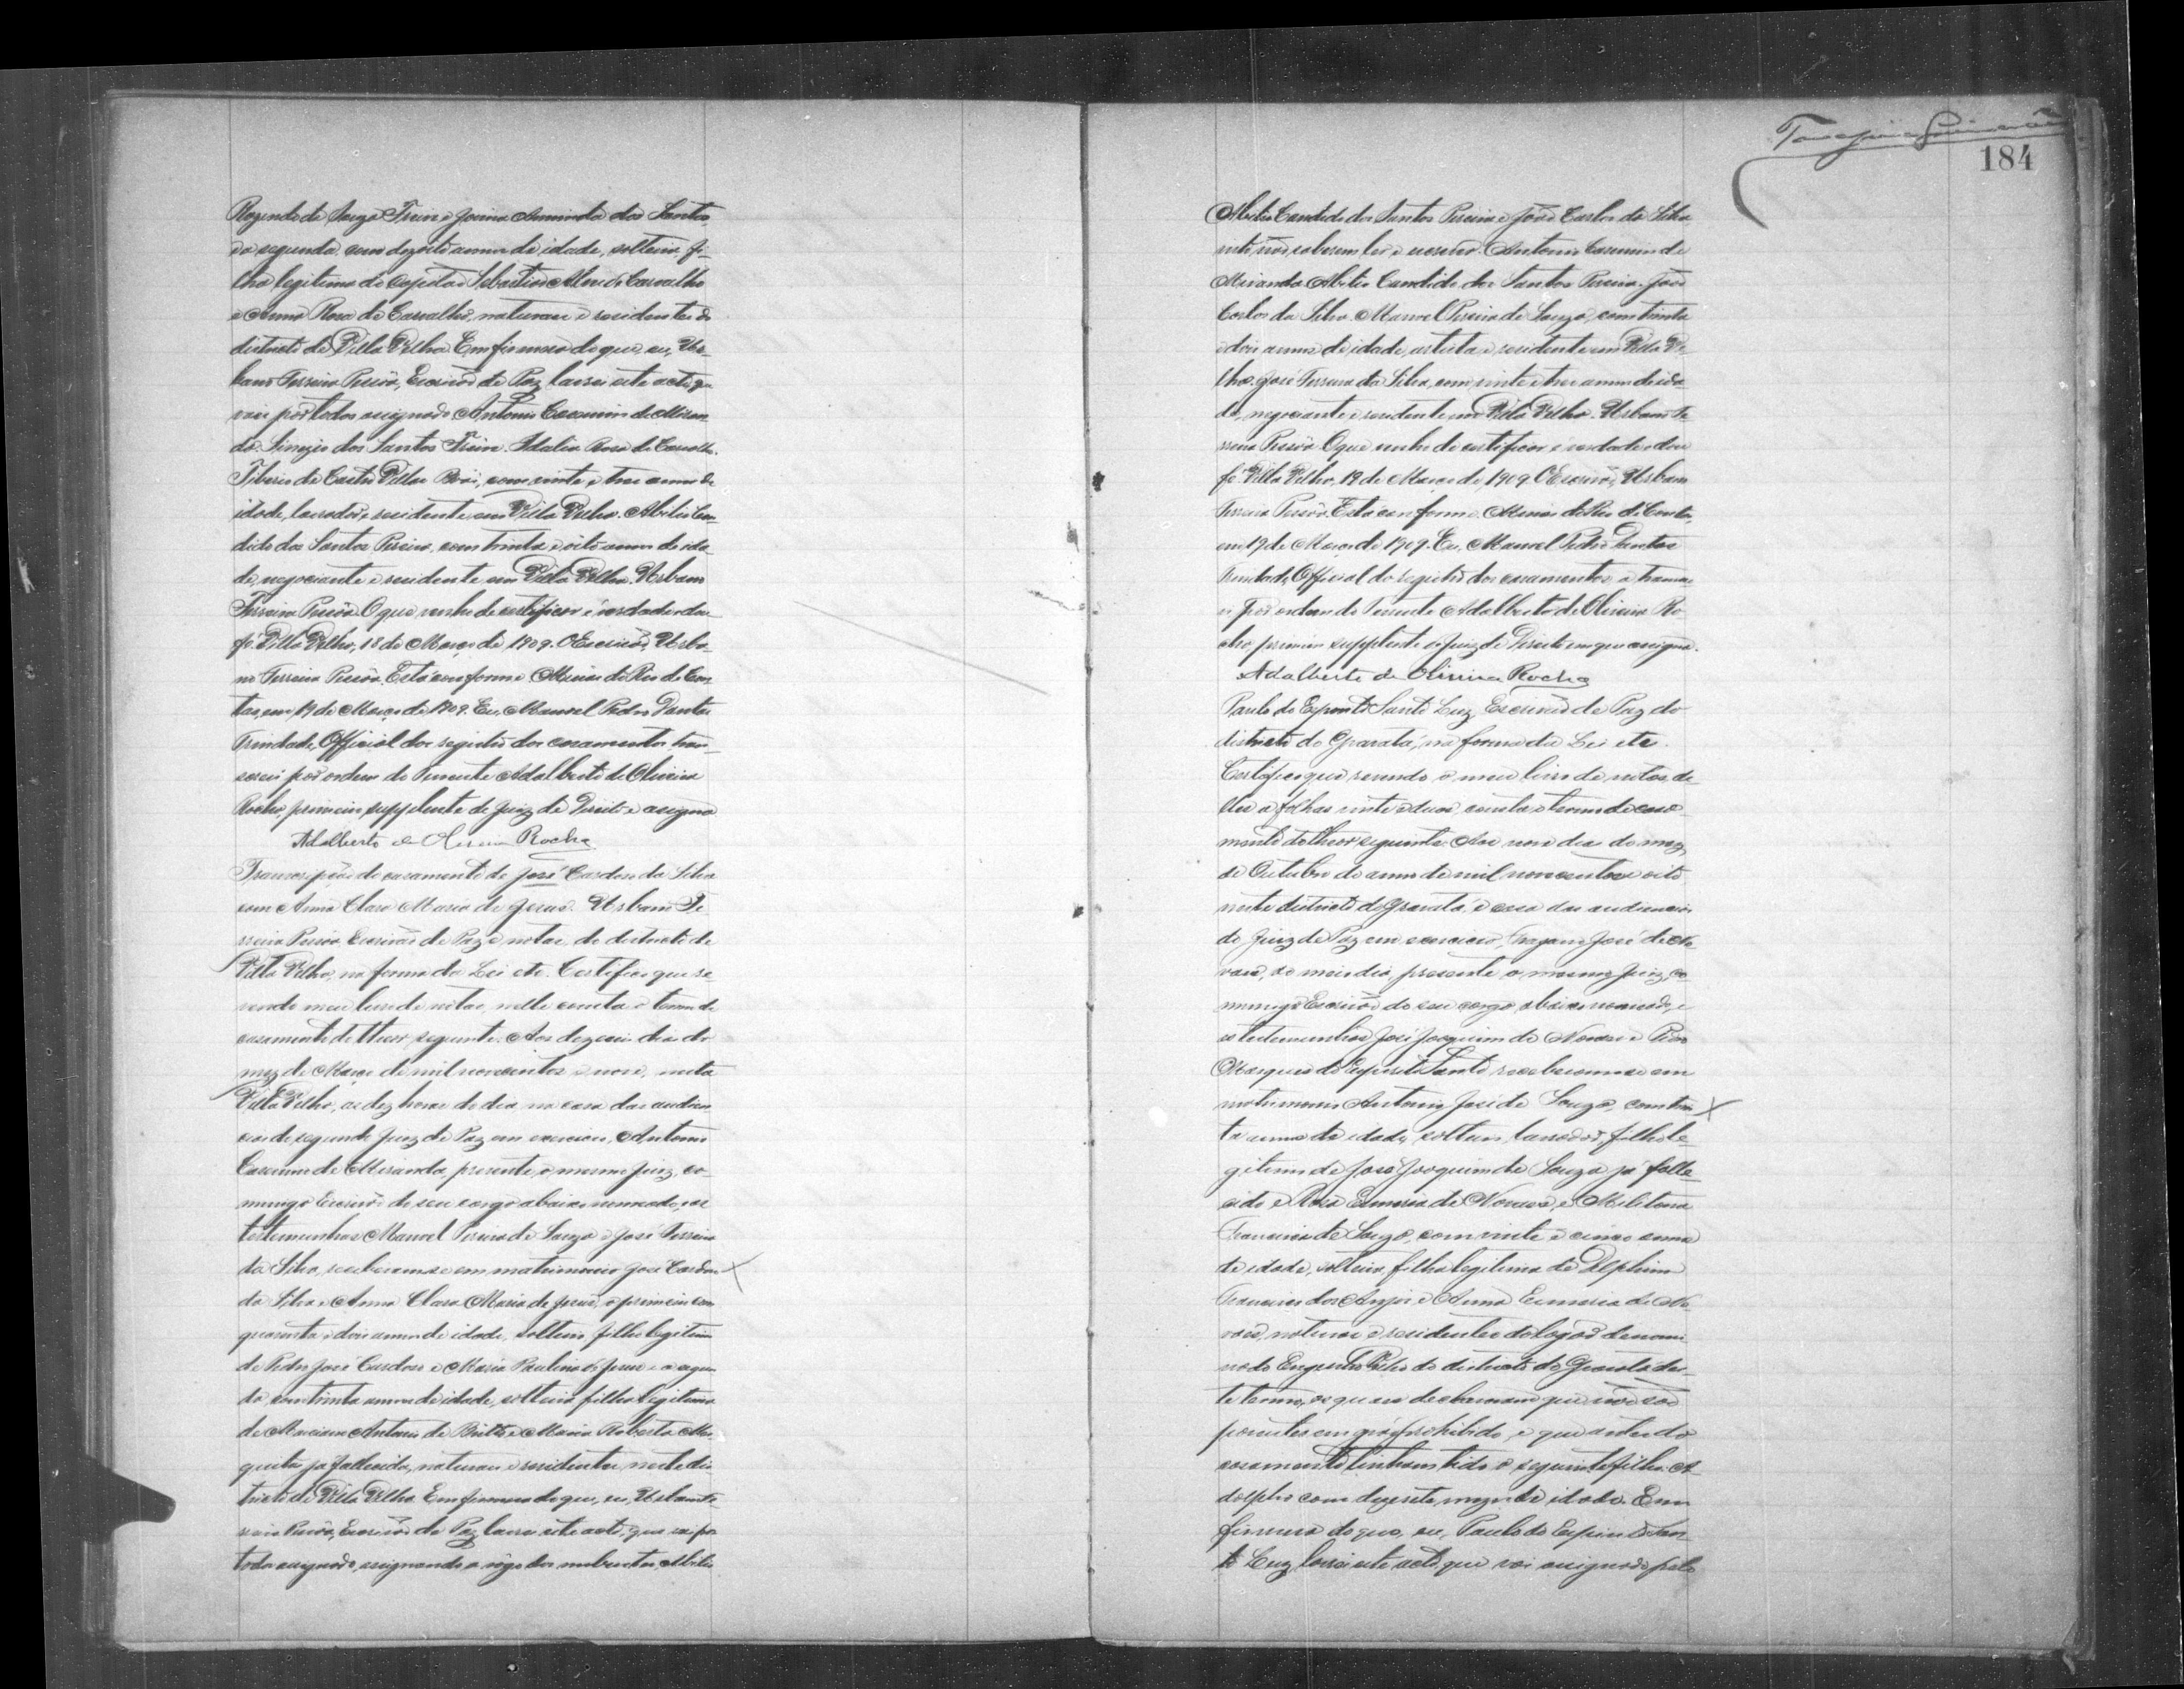 Rozendo de Souza Freire e Jovina Arminda dos Santos,
e a segunda com dezoito annos de idade, solteira fi-
lha legitima do capitão Sebastião Alves de Carvalho
e Anna Rosa de Carvalho, naturaes e residentes do
districto de Villa Velha. Em firmeza do que, eu, Ur-
bano Ferreira Pessôa, Escrivão de Paz lavrei este acto que
vai por todos assignado. Antonio Casemiro de Miran-
da. Sinezio dos Santos Freire. Idalia Rosa de Carvalho.
Tiberio de Castro Villas Bôas, com vinte e tres annos de
idade, lavrador, residente em Villa Velha. Abilio Can-
dido dos Santos Pereira, com trinta e oito annos de ida-
de, negociante e residente em Villa Velha. Urbano
Ferreira Pessôa. O que venho de certificar é verdade e dou
fé. Villa Velha, 18 de Março de 1909. O Escrivão, Urba-
no Ferreira Pessôa. Está conforme. Minas do Rio de Con-
tas, em 19 de Março de 1909. Eu, Manoel Pedro Dantas
Trindade, Official dos registro dos casamentos trans-
crevi por ordem do Tenente Adalberto de Oliveira
Rocha, primeiro supplente do Juiz de Direito e assigna
Adalberto de Oliveira Rocha
Transcripção do casamento de José Cardoso da Silva
com Anna Clara Maria de Jesus. Urbano Fe-
rreira Pessôa Escrivão de Paz e notas do districto de
Villa Velha, na forma da Lei etc. Certifico que re-
vendo meu livro de notas, nelle consta o termo de
casamento do theor seguinte. Aos dezeseis dias do
mez de Março de mil novecentos e nove, nesta
Villa Velha, as dez horas do dia na casa das audien-
cias do segundo Juiz de Paz em exercicio, Antonio
Casemiro de Miranda, presente o mesmo Juiz, co-
mmigo Escrivão de seu cargo abaixo nomeado, e as
testemunhas Manoel Pereira de Souza e José Ferreira
da Silva, receberam-se em matrimonio José Cardoso X
da Silva e Anna Clara Maria de Jesus, o primeiro com
quarenta e dois annos de idade, solteiro filho legitimo
de Pedro José Cardoso e Maria Paulina de Jesus e a segun-
da com trinta annos de idade, solteira filha legitima
de Marciano Antonio de Britto e Maria Roberta Mes-
quita já fallecida, naturaes e residentes neste dis-
tricto de Villa Velha. Em firmeza do que, eu, Urbano Fe-
rreira Pessôa, Escrivão de Paz lavrei este acto, que vai por
todos assignado, assignando a rogo dos nubentes, Abilio
184
Abilio Candido dos Santos Pereira e João Carlos da Silva
este não saberem ler e escrever. Antonio Casemiro de
Miranda. Abilio Candido dos Santos Pereira. João
Carlos da Silva. Manoel Pereira de Souza, com trinta
e dois annos de idade, artista, e residente em Villa Ve-
lha. José Ferreira da Silva, com vinte e tres annos de ida-
de, negociante e residente em Villa Velha. Urbano Fe-
rreira Pessôa. O que venho de certificar é verdade e dou
fé. Villa Velha, 19 de Março de 1909. O Escrivão, Urbano
Ferreira Pessôa. Está conforme. Minas do Rio de Contas,
em 19 de Março de 1909. Eu, Manoel Pedro Dantas
Trindade, Official do registro dos casamentos o transcre-
vi por ordem do Tenente Adalberto de Oliveira Ro-
cha primeiro supplente do Juiz de Direito em que assigna.
Adalberto de Oliveira Rocha
Paulo do Espirito Santo Luz, Escrivão de Paz do
districto do Gravatá, na forma da Lei etc.
Certifico que revendo o meu livro de notas, de
lle a folhas vinte e duas consta o termo de casa-
mento do theor seguinte. Aos nove dias do mez
de Outubro do anno de mil novecentos e oito
neste districto do Gravatá, e casa das audiencias
do Juiz de Paz em exercicio, Trajano José de No-
vaes, ao meio dia, presente o mesmo Juiz, co-
mmigo Escrivão do seu cargo abaixo nomeado, e
as testemunhas José Joaquim de Novaes e Pedro
Marques do Espirito Santo receberam-se em
matrimonio Antonio José de Souza, com trin- X
ta annos de idade, solteiro, lavrador, filho le-
gitimo de José Joaquim de Souza já falle-
cido e Rosa Eumeria de Novaes, e Militana
Francisca de Souza, com vinte e cinco annos
de idade, solteira, filha legitima de Delphino
Francisco dos Anjos e Anna Eumeria de No-
vaes, naturaes e residentes do logar denomi-
nado Engenho Velho do districto do Gravatá des-
te termo, os quaes declararam que não são
parentes em gráo prohibido, e que antes do
casamento tinham tido o seguinte filho: A-
dolpho com dezesete mezes de idade. Em
firmeza do que, eu, Paulo do Espirito San-
to Luz, lavrei este acto que vai assignado pelo